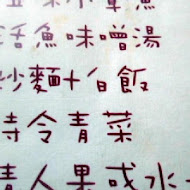 活魚味噌湯
炒麵+白飯
時令青菜
情人果或水